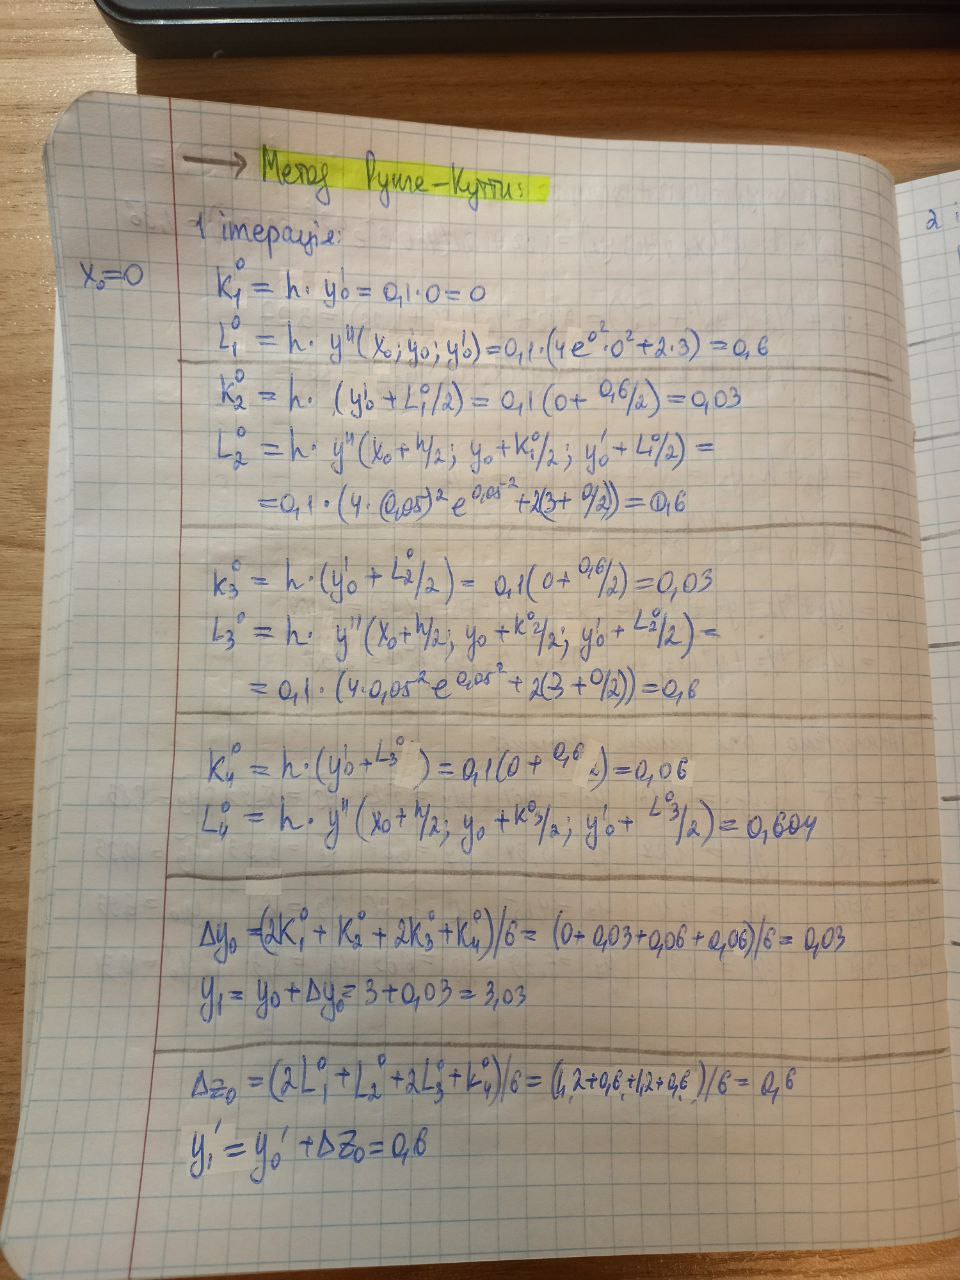 → Метод Рунге-Кутти:
1 ітерація:
x₀=0
K₁⁰ = h· y₀' = 0,1·0 = 0
L₁⁰ = h· y''(x₀; y₀; y₀') = 0,1·(4e^0²·0²+2·3) = 0,6
K₂⁰ = h· (y₀' + L₁⁰/2) = 0,1(0+ 0,6/2) = 0,03
L₂⁰ = h· y''(x₀+h/2; y₀+K₁⁰/2; y₀' + L₁⁰/2) =
=0,1·(4·(0,05)² e^0,05² +2(3+ 0/2)) = 0,6
K₃⁰ = h·(y₀' + L₂⁰/2) = 0,1(0+ 0,6/2) = 0,03
L₃⁰ = h· y''(x₀+h/2; y₀ +K⁰₂/2; y₀' + L₂⁰/2) =
= 0,1·(4·0,05² e^0,05² + 2(3 +0/2)) = 0,6
K₄⁰ = h·(y₀' + L₃⁰ ) = 0,1(0+ 0,6 ) = 0,06
L₄⁰ = h· y''(x₀+h/2; y₀ +K⁰₃/2; y₀' + L⁰₃/2) = 0,604
Δy₀ =(2K₁⁰ + K₂⁰ + 2K₃⁰ + K₄⁰)/6 = (0+ 0,03+0,06 +0,06)/6 = 0,03
y₁ = y₀ + Δy₀ = 3 + 0,03 = 3,03
Δz₀ = (2L₁⁰ + L₂⁰ + 2L₃⁰ + K₄⁰)/6 = (1,2+0,6+1,2+0,6)/6 = 0,6
y₁' = y₀' + Δz₀ = 0,6
2